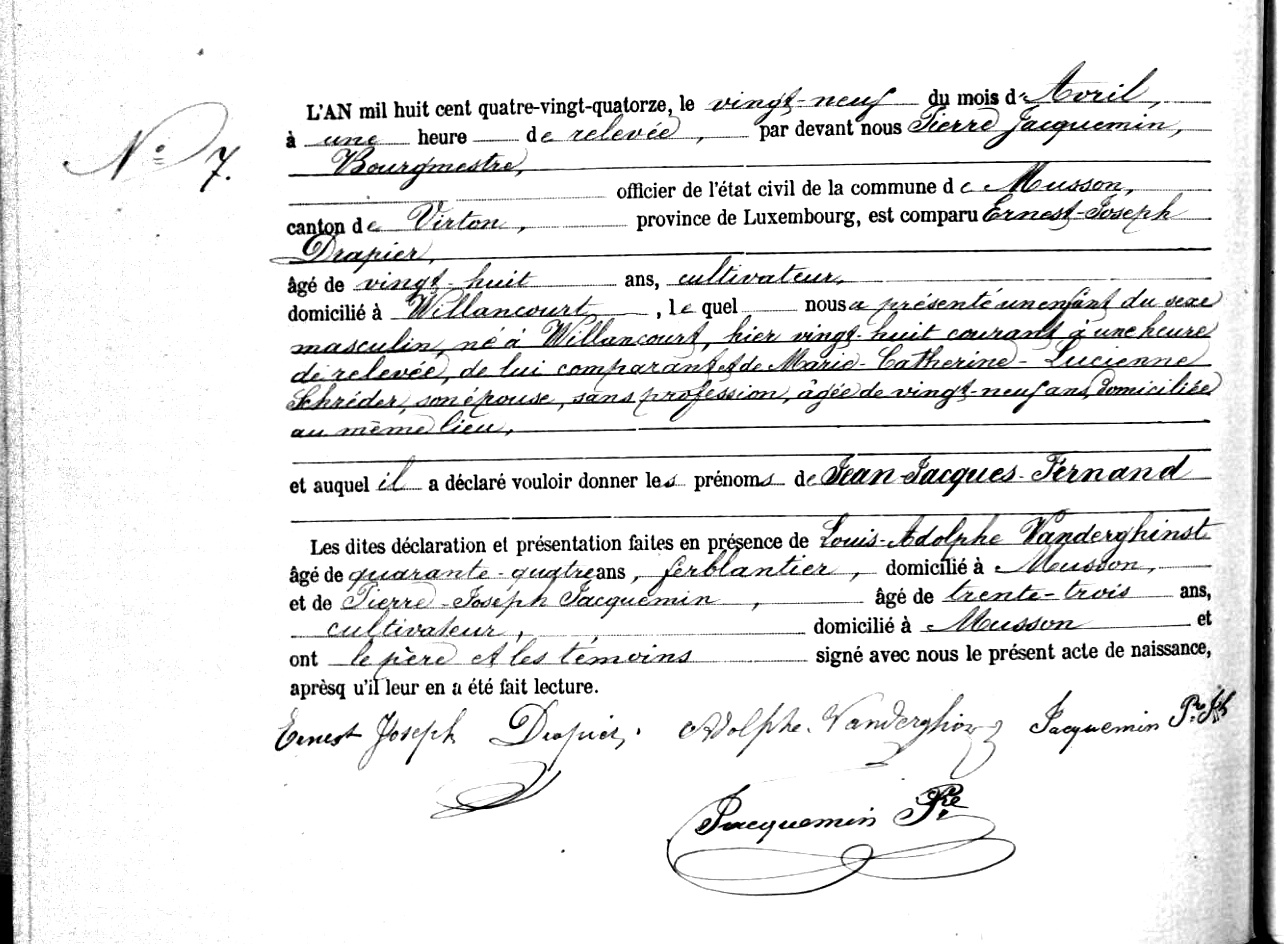 N° 7.
L'AN mil huit cent quatre-vingt-quatorze, le vingt-neuf du mois d'Avril,
à une heure de relevée, par devant nous Pierre Jacquemin,
Bourgmestre,
officier de l'état civil de la commune de Musson,
canton de Virton, province de Luxembourg, est comparu Ernest-Joseph
Drapier,
âgé de vingt-huit ans, cultivateur,
domicilié à Willancourt, le quel nous a présenté un enfant du sexe
masculin, né à Willancourt, hier vingt-huit courant à une heure
de relevée, de lui comparant et de Marie-Catherine-Lucienne
Schréder, son épouse, sans profession, âgée de vingt-neuf ans, domiciliée
au même lieu,
et auquel il a déclaré vouloir donner les prénoms de Jean-Jacques-Fernand
Les dites déclaration et présentation faites en présence de Louis-Adolphe Vanderghinst
âgé de quarante-quatre ans, ferblantier, domicilié à Musson,
et de Pierre-Joseph Jacquemin, âgé de trente-trois ans,
cultivateur, domicilié à Musson et
ont le père et les témoins signé avec nous le présent acte de naissance,
aprèsq u'il leur en a été fait lecture.
Ernest Joseph Drapier. Adolphe Vanderghinst Jacquemin Pre Jh
Jacquemin Pre